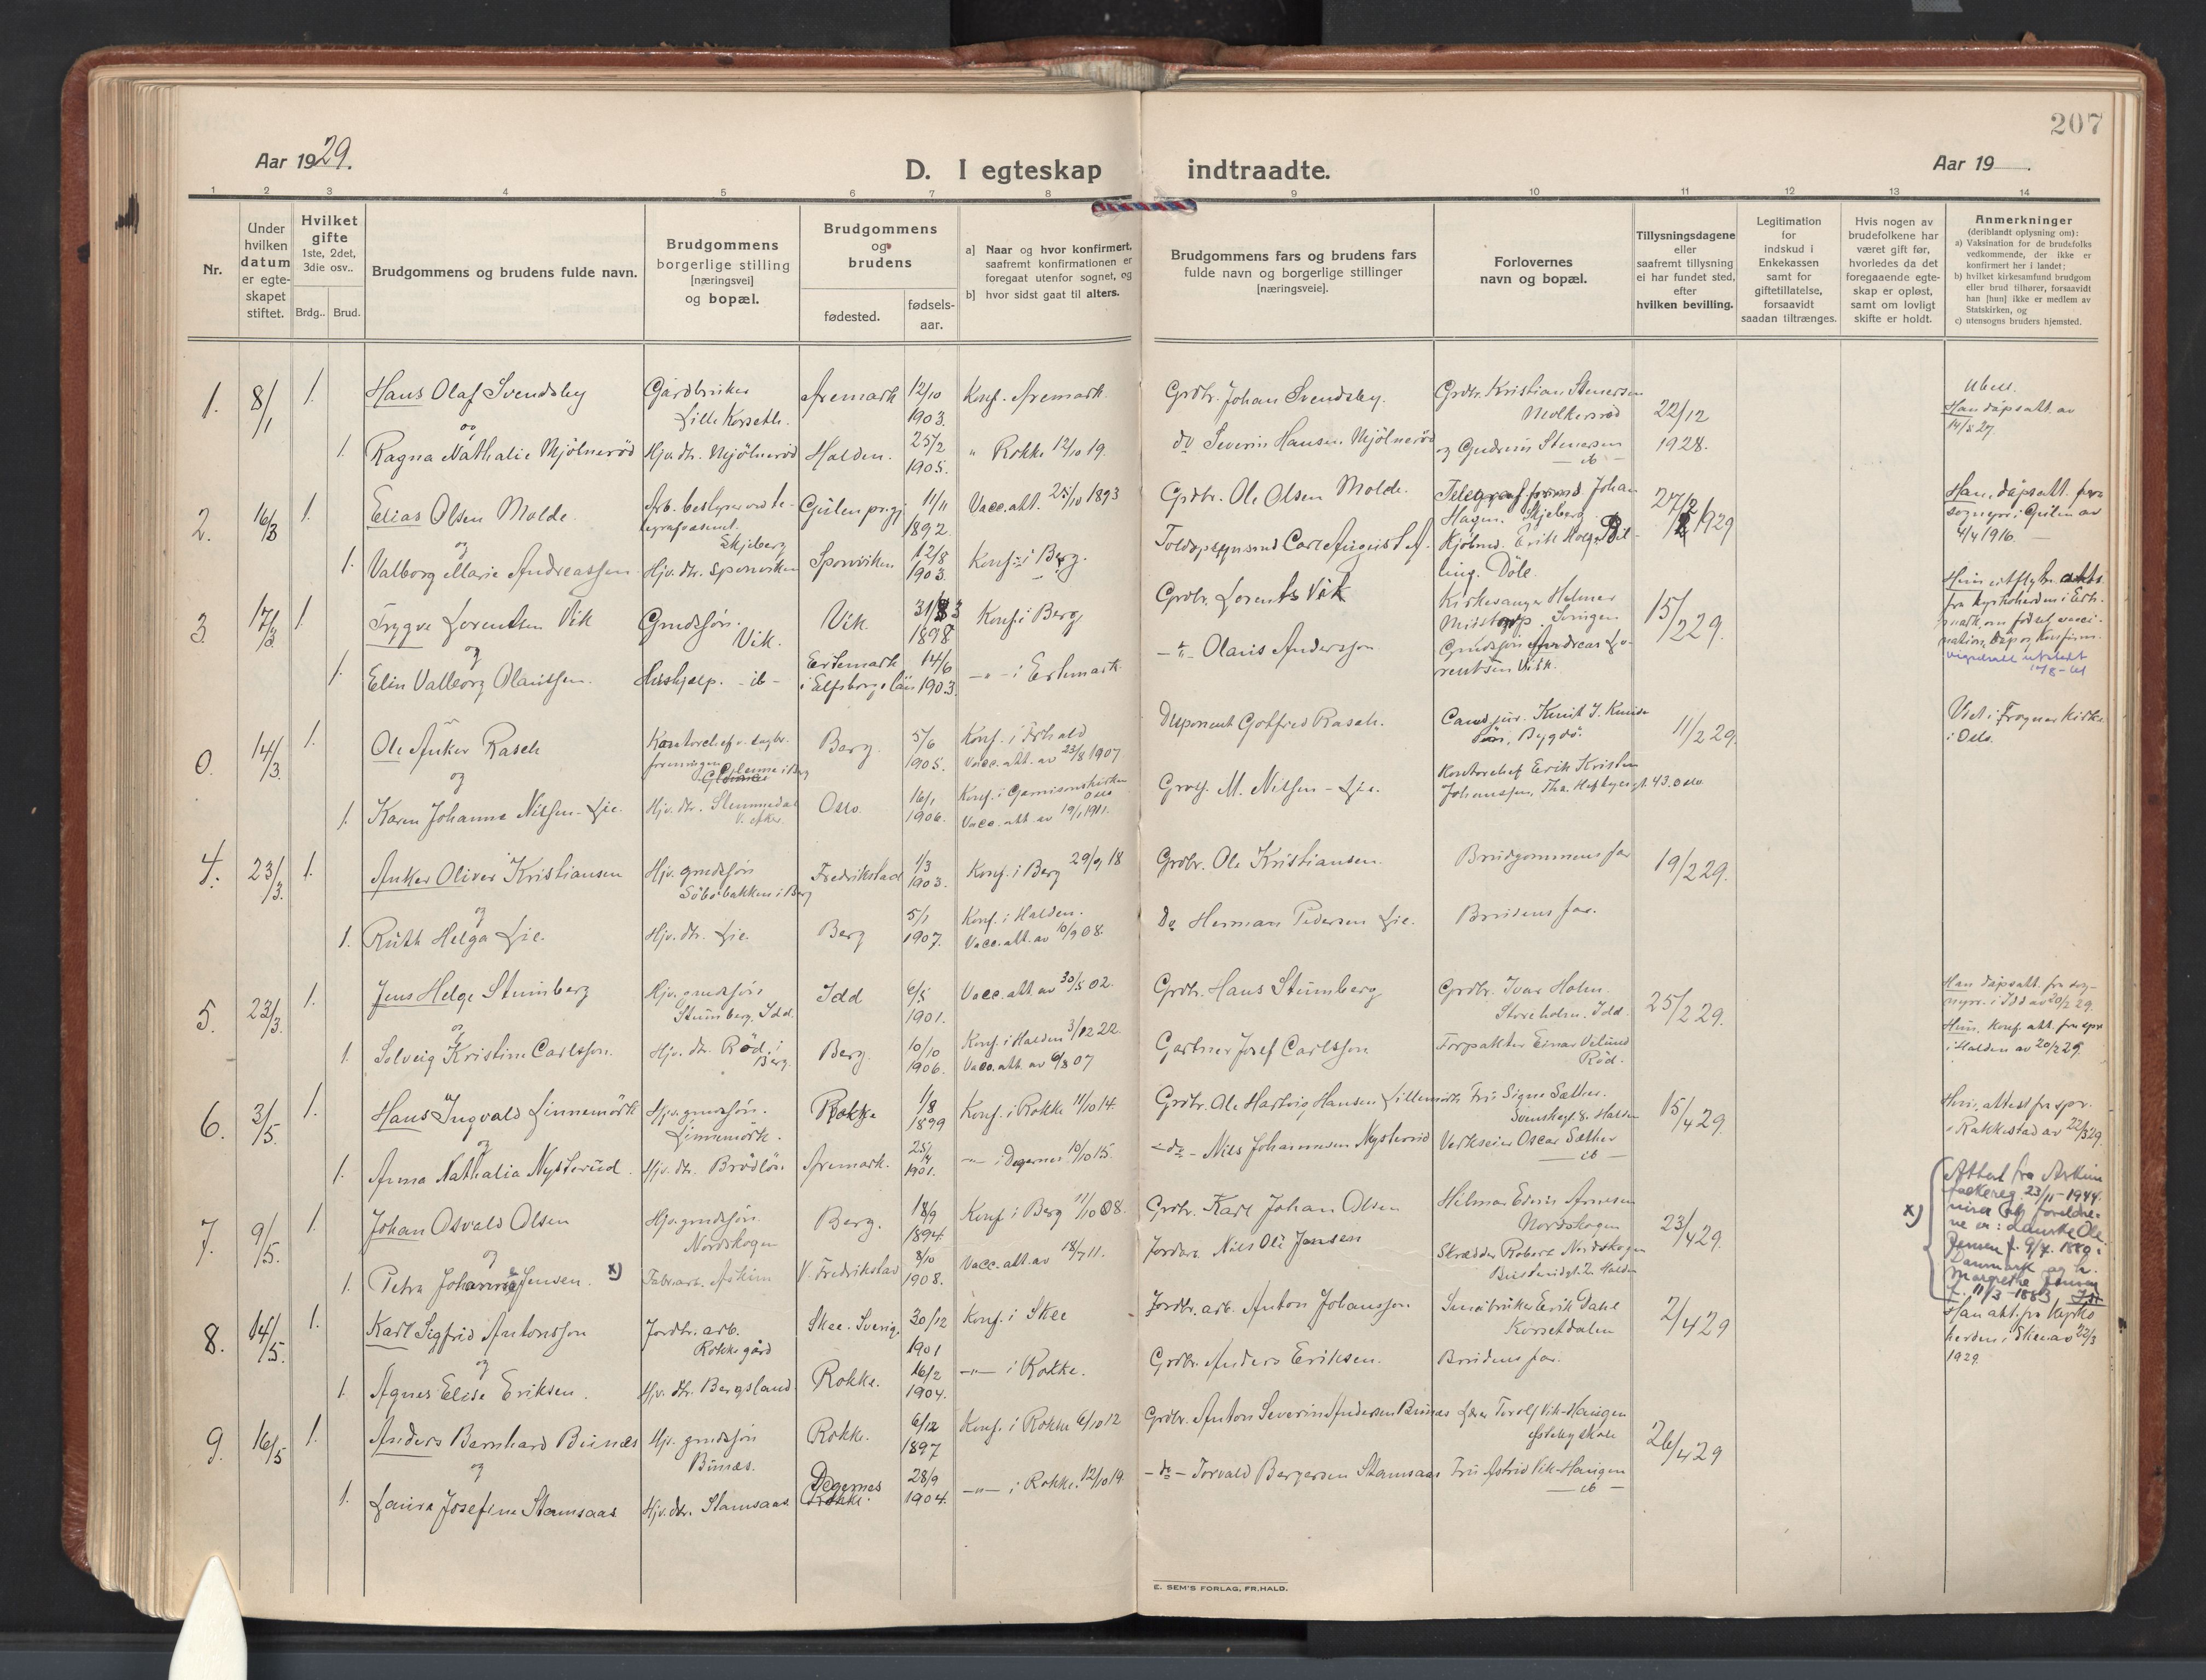 207
Aar 1929.
D. I egteskap indtraadte.
Aar 19
1 2 3 4 5 6 7 8 9 10 11 12 13 14
Nr.
Under hvilken datum er egte-skapet stiftet.
Hvilket gifte 1ste, 2det, 3die osv..
Brdg.. Brud.
Brudgommens og brudens fulde navn.
Brudgommens borgerlige stilling [næringsvei] og bopæl.
Brudgommens og brudens
fødested.
fødsels-aar.
a] Naar og hvor konfirmert, saafremt konfirmationen er foregaat utenfor sognet, og
b] hvor sidst gaat til alters.
Brudgommens fars og brudens fars fulde navn og borgerlige stillinger [næringsveie].
Forlovernes navn og bopæl.
Tillysningsdagene eller saafremt tillysning ei har fundet sted, efter hvilken bevilling.
Legitimation for indskud i Enkekassen samt for giftetillatelse, forsaavidt saadan tiltrænges.
Hvis nogen av brudefolkene har været gift før, hvorledes da det foregaaende egte-skap er opløst, samt om lovligt skifte er holdt.
Anmerkninger (deriblandt oplysning om):
a) Vaksination for de brudefolks vedkommende, der ikke er konfirmert her i landet;
b) hvilket kirkesamfund brudgom eller brud tilhører, forsaavidt han [hun] ikke er medlem av Statskirken, og
c) utensogns bruders hjemsted.
1. 8/1 1. Hans Olaf Svendsby Gårdbruker Aremark 12/10 1903. Konf. Aremark. Grdbr. Johan Svendsby. Grdbr. Kristian Stenersen 22/12 1928.
Lille Korseth.
og
1. Ragna Nathalie Mjölneröd Hjv. dtr. Mjölneröd Halden. 25/2 1905. " Rokke 12/10 19. do Severin Hansen Mjölneröd og Gudrun Stenersen
ib
Han dåpsatt. av 14/5 27
2. 16/3 1. Elias Olsen Molde Gulen prgj 11/11 1892. Vacc. att. 25/10 1893 Grdbr. Ole Olsen Molde. Johan Hagen. Skjeberg 27/2 1929
Skjeberg
og
1. Valborg Marie Andreassen Hjv. dtr. Sponviken Sponviken 12/8 1903. Konf. i Berg.
Han, dåpsatt. fra sognepr. i Gulen av 4/4 1916.
3. 17/3 1. Trygve Lorentsen Vik Grudsön. Vik. Vik 1898 Konf. i Berg Grdbr. Lorents Vik Kirkesanger Helmer 15/2 29.
og
1. Elin Valborg Olaussen. Hushjelp. - ib - Ertemark i Elfsborgs län 14/6 1903. -"- i Ertemark -"- Olaus Andersson Grudsön Andreas Lorentsen Vik.
0. 14/3. 1. Ole Anker Rasch Berg. 5/6 1905. Konf. i Frhald Vacc. att. av 23/8 1907 Disponent Gotfred Rasch. Cand. jur. Knut J. Bygdö. 11/2 29.
Viet i Frogner kirke i Oslo.
og
1. Karen Johanne Nilsen-Lie. Hjv. dtr. V. Aker. Oslo. 16/1 1906. Konf. i Garnisonskirken Oslo Vacc. att. av 19/1 1911. M. Nilsen-Lie. Kontorchef Erik Kristian Johanssen, 43. Oslo
4. 23/3. 1. Anker Oliver Kristiansen Hjv. grudsön Fredrikstad 1/3 1903. Konf. i Berg 29/9 18 Grdbr. Ole Kristiansen. Brudgommens far 19/2 29.
Söböbakken i Berg
og
1. Ruth Helga Lie. Hjv. dtr. Lie. Berg 5/1 1907. Konf. i Halden. Vacc. att. av 10/9 08. Do Herman Pedersen Lie. Brudens far.
5. 23/3. 1. Jens Helge Stumberg Hjv. grudsön Stumberg, Idd. Idd 6/5 1901. Vacc. att. av 30/5 02. Grdbr. Hans Stumberg Grdbr. Ivar Holm. Storeholm. Idd. 25/2 29.
Han dåpsatt. fra sognepr. i Idd av 20/2 29.
og
1. Solveig Kristine Carlsson. Hjv. dtr. Röd i Berg. Berg. 10/10 1906. Konf. i Halden 3/12 22. Vacc. att. av 6/8 07 Gartner Josef Carlsson Forpakter Einar Röd.
Hun, konf. att. fra spr. i Halden av 20/2 29.
6. 3/5. 1. Hans Ingvald Linnemörk Hjv. grudsön. Linnemörk. Rokke 1/8 1899 Konf. i Rokke 11/10 14. Grdbr. Ole Hartvig Hansen Lillemörk Fru Signe Sæther. 15/4 29.
og
1. Anna Nathalia Nysterud. Hjv. dtr. Brödlös Aremark. 1901. -"- i Degernes 10/10 15. - do - Nils Johannesen Nysterud Verkseier Oscar Sæther
ib
Hun, attest fra spr. i Rakkestad av 22/3 29.
7. 9/5. 1. Johan Osvald Olsen Hjv. grudsön. Nordskogen Berg. 18/9 1894. Konf. i Berg 11/10 08. Grdbr. Karl Johan Olsen Hilmar Edvin Arnesen Nordskogen 23/4 29.
og
1. Petra Johanne Jensen. x) Fabr. arb. Askim V. Fredrikstad 8/10 1908. Vacc. att. av 18/7 11. Jordarb. Nils Ole Jensen Skrædder Robert Nordskogen Halden
x) Attest fra Askim folkereg. 23/11-1944. viser at foreldrene er: Lauritz Ole Jensen f. 9/4. 1880 i Danmark og h. Margrethe Jensen f. 11/3-1883
8. 14/5. 1. Karl Sigfrid Antonsson Jordbr. arb. Rokke gård Skee. Sverige 30/12 1901 Konf. i Skee Jordbr. arb. Anton Johansson Småbruker Erik Dahl Korsetdalen 2/4 29
Han att. fra Kyrkoherden i Skee av 22/3 1929.
og
1. Agnes Elise Eriksen. Hjv. dtr. Bergsland Rokke. 16/2 1904. -"- i Rokke. Grdbr. Anders Eriksen. Brudens far.
9. 16/5 1. Anders Bernhard Bunæs Hjv. grudsön Bunæs. Rokke. 6/12 1897 Konf. i Rokke 6/10 12 Grdbr. Anton Severin Andersen Bunæs Lærer Torolf Vik-Haugen 26/4 29
og
1. Laura Josefine Stamsaas Hjv. dtr. Stamsaas. Degernes 28/9 1904. -"- i Rokke. 12/10 19. - do - Torvald Bergersen Stamsaas Fru Astrid Vik-Haugen
ib
E. SEM'S FORLAG, FR.HALD.